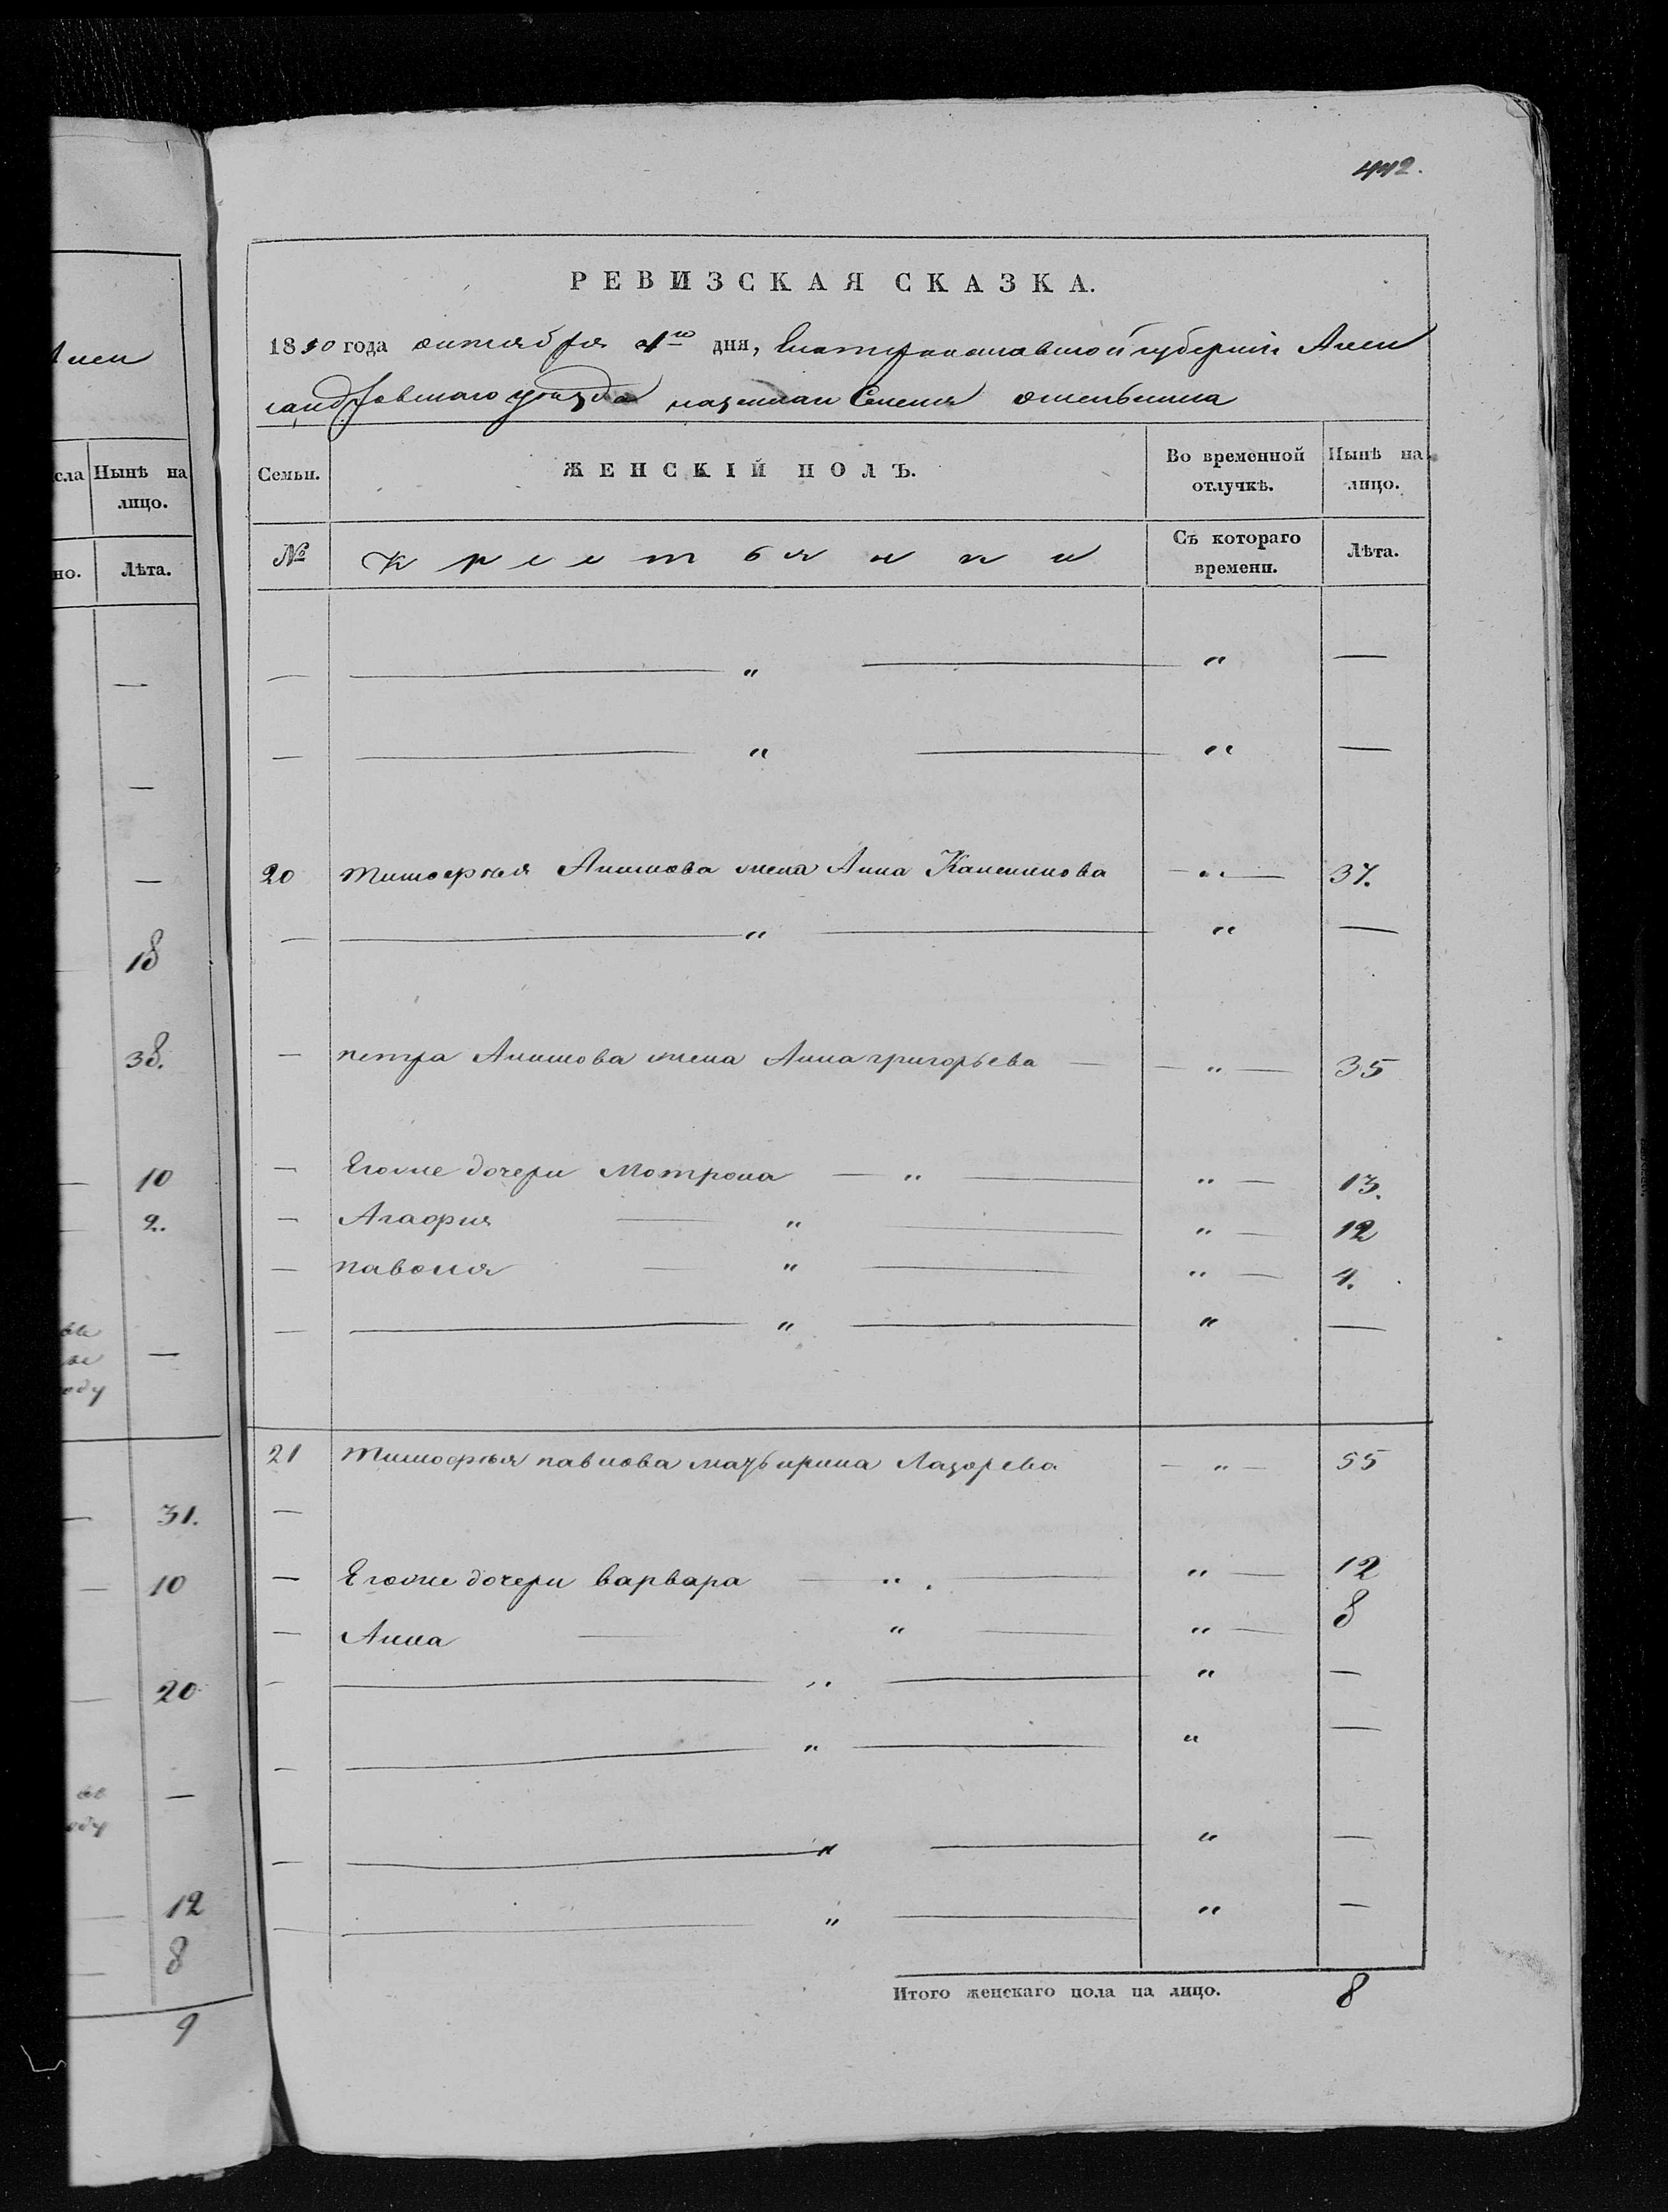 442.
РЕВИЗСКАЯ СКАЗКА.
1850 года октября 4го дня, Екатеринославской губернии Алек
сандровского уезда казенная
Алек
сла Нынѣ на
лицо.
но. Лѣта.
Семьи. ЖЕНСКІЙ ПОЛЪ. Во временной отлучкѣ. Нынѣ на лицо.
№ Крестьянки Съ котораго времени. Лѣта.
— — " — " —
— — " — " —
—
—
—
18
38.
10
2.
оду —
31.
10
20
оду —
12
8
9
20 Тимофея Акимова жена Анна — " — 37.
— — " — " —
— петра Акимова жена Анна григорьева — — " — 35
— Егоже дочери Мотрона — " — " — 13.
— Агафия — " — " — 12
— — " — " — 4.
— — " — " —
21 Тимофея павлова мать ирина Лазорева — " — 55
—
— Егоже дочери варвара — " — " — 12
— Анна — " — " — 8
— — " — " —
— — " — " —
— — " — " —
— — " — " —
Итого женскаго пола на лицо. 8